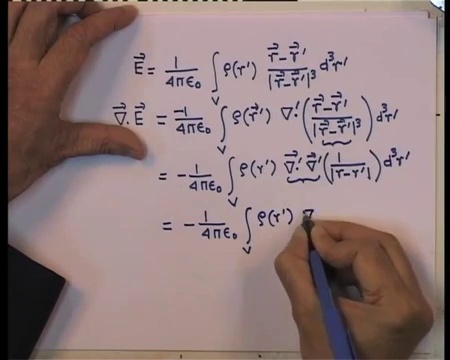 \vec{E} = \frac{1}{4\pi\epsilon_0} \int_V \rho(r') \frac{\vec{r}-\vec{r}'}{|\vec{r}-\vec{r}'|^3} d^3r'
\vec{\nabla}\cdot\vec{E} = \frac{-1}{4\pi\epsilon_0} \int_V \rho(\vec{r}') \nabla'\cdot\left(\frac{\vec{r}-\vec{r}'}{|\vec{r}-\vec{r}'|^3}\right) d^3r'
= -\frac{1}{4\pi\epsilon_0} \int_V \rho(r') \vec{\nabla}'\cdot\vec{\nabla}'\left(\frac{1}{|r-r'|}\right) d^3r'
= -\frac{1}{4\pi\epsilon_0} \int_V \rho(r') \nabla